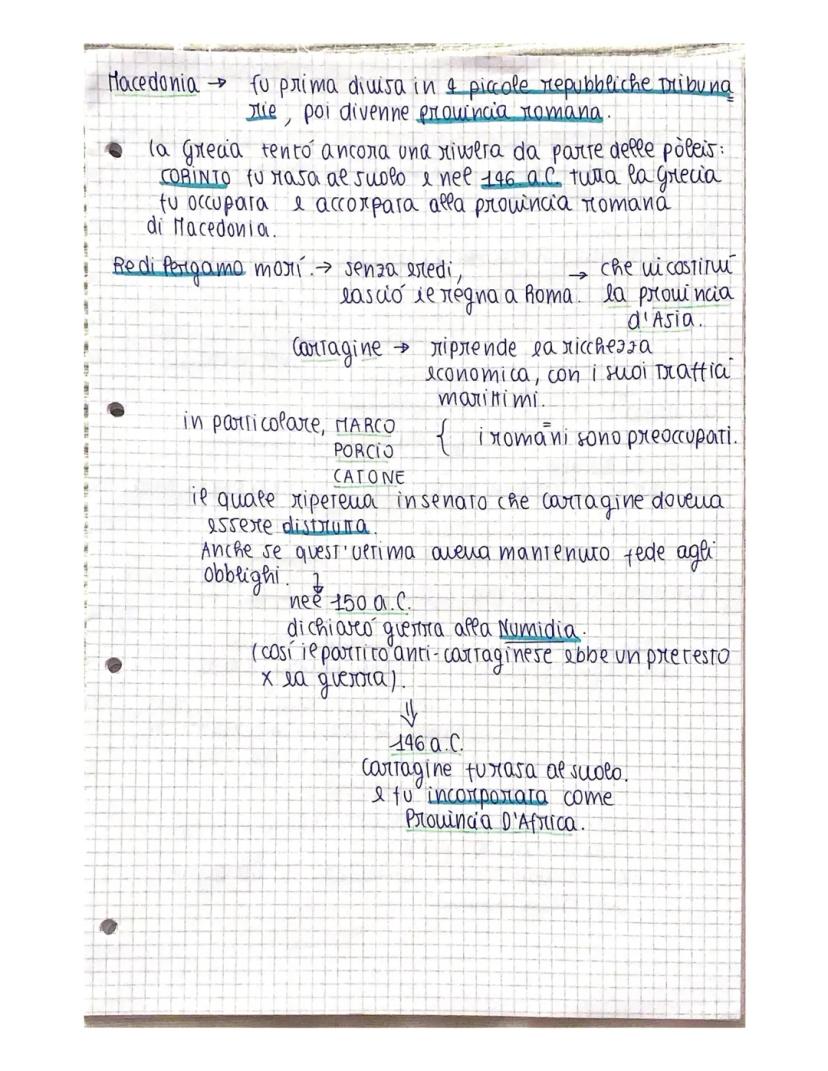 Macedonia → fu prima divisa in 4 piccole repubbliche tribuna
rie, poi divenne provincia romana.
la Grecia tentó ancora una rivolta da parte delle pòleis:
CORINTO fu rasa al suolo e nel 146 a.C. tutta la Grecia
fu occupata e accorpata alla provincia romana
di Macedonia.
Re di Pergamo morí. → senza eredi, → che vi costituí
lasció il regno a Roma. la provincia
d'Asia.
Cartagine → riprende la ricchezza
economica, con i suoi traffici
marittimi.
in particolare, MARCO { i romani sono preoccupati.
PORCIO
CATONE
il quale ripeteva in senato che Cartagine doveva
essere distrutta.
Anche se quest'ultima aveva mantenuto fede agli
obblighi. ↓
nel 150 a.C.
dichiaró guerra alla Numidia.
(cosí il partito anti-cartaginese ebbe un pretesto
x la guerra).
⇓
146 a.C.
Cartagine fu rasa al suolo.
e fu incorporata come
Provincia D'Africa.